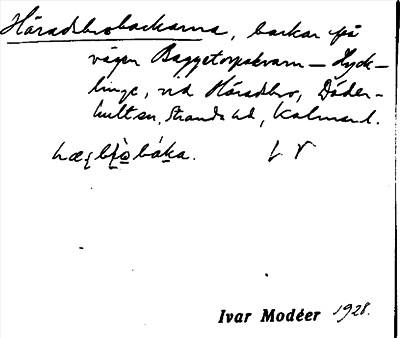 Häradsbrobackarna, backar på
vägen Baggetorpskvarn – Lyck-
linge, vid Häradbro, Döder-
hult sn, Stranda hd, Kalmar l.
Ivar Modéer 1928.